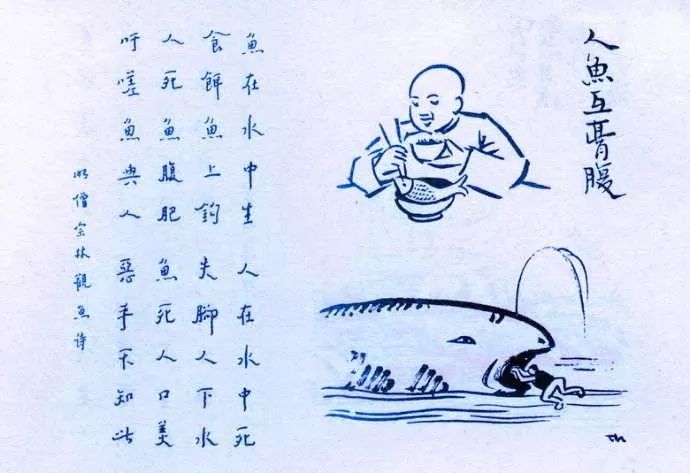 人魚互腹
魚在水中生 人在水中死
食餌魚上鈎 失腳人下水
人死魚腹肥 魚死人口美
吁嗟魚與人 惡乎不知此
明僧宗林觀魚詩
TK